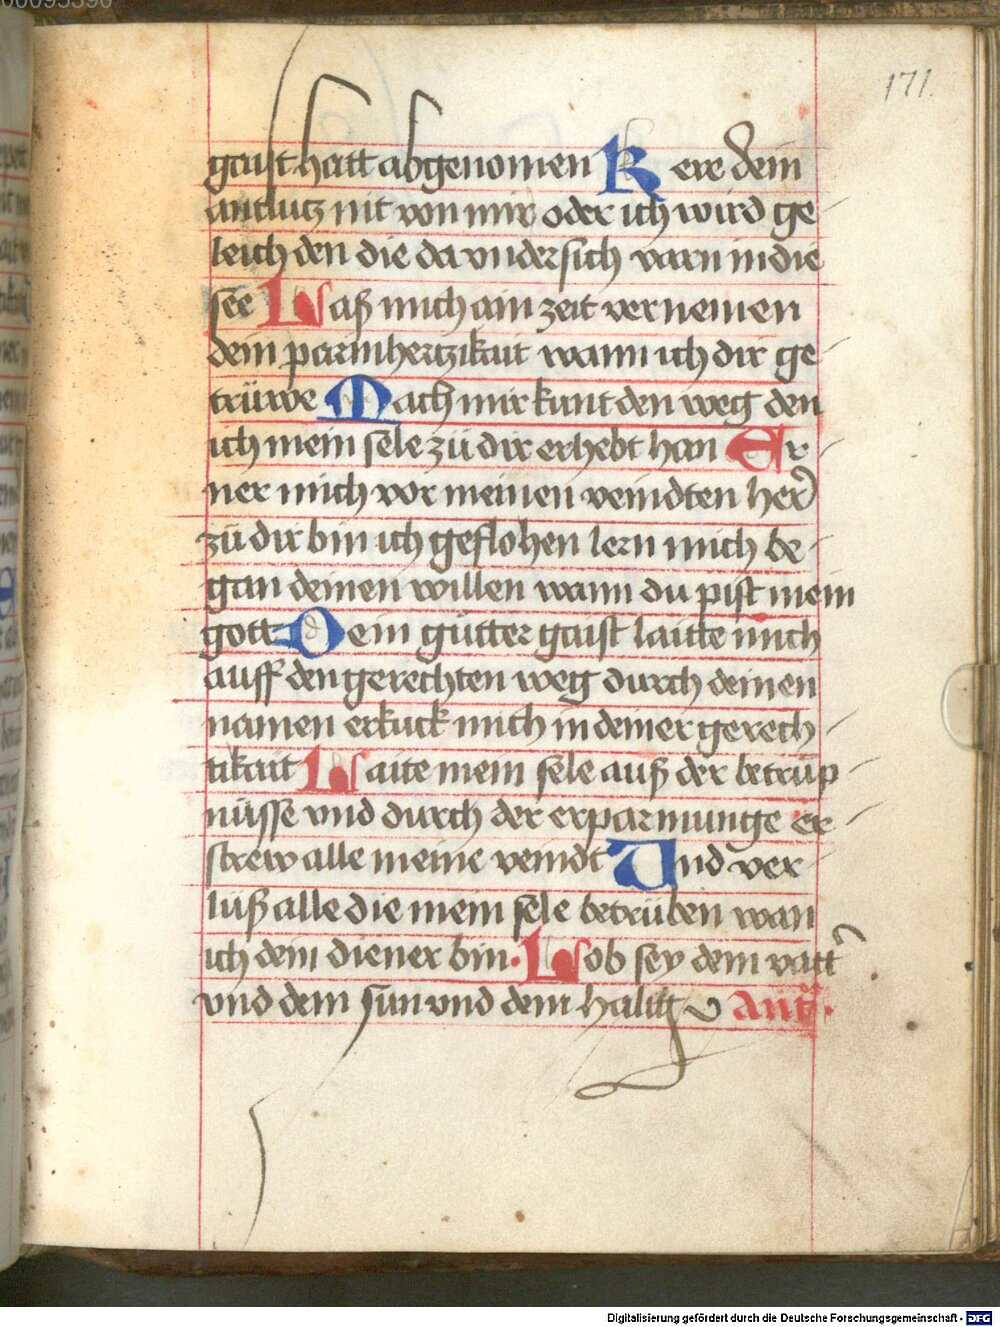 00095390
171.
gaist hatt abgenomen Kere dein
antlutz nit von mir oder ich wird ge-
leich den die da vndersich varn in die
see Laß mich ain zeit vernemen
dein parmhertzikait wann ich dir ge-
trüwe Mach mir kunt den weg den
ich mein sele zü dir erhebt han Er-
ner mich vor meinen veindten her
zü dir bin ich geflohen lern mich be-
gan deinen willen wann du pist mein
gott Dein gütter gaist laitte mich
auff den gerechten weg durch deinen
namen erkuck mich in deiner gerech-
tikait Laite mein sele auß der betrüp-
nüsse vnd durch der erparmunge er-
strew alle meine veindt Vnd ver-
lüß alle die mein sele betrüben wan
ich dein diener bin. Lob sey dem vatt
vnd dem sun vnd dem halig v Ant.
Digitalisierung gefördert durch die Deutsche Forschungsgemeinschaft - DFG